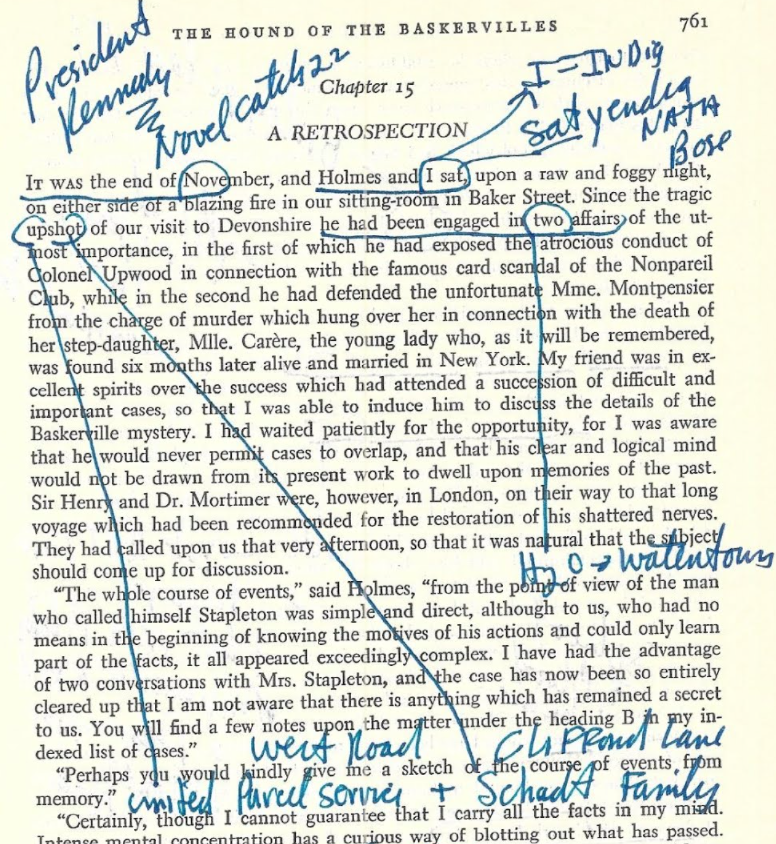 THE HOUND OF THE BASKERVILLES 761
President
Kennedy
Novel catch 22
Chapter 15
I = INDIA
Satyendra
NATH
Bose
A RETROSPECTION
IT was the end of November, and Holmes and I sat, upon a raw and foggy night,
on either side of a blazing fire in our sitting-room in Baker Street. Since the tragic
upshot of our visit to Devonshire he had been engaged in two affairs of the ut-
most importance, in the first of which he had exposed the atrocious conduct of
Colonel Upwood in connection with the famous card scandal of the Nonpareil
Club, while in the second he had defended the unfortunate Mme. Montpensier
from the charge of murder which hung over her in connection with the death of
her step-daughter, Mlle. Carère, the young lady who, as it will be remembered,
was found six months later alive and married in New York. My friend was in ex-
cellent spirits over the success which had attended a succession of difficult and
important cases, so that I was able to induce him to discuss the details of the
Baskerville mystery. I had waited patiently for the opportunity, for I was aware
that he would never permit cases to overlap, and that his clear and logical mind
would not be drawn from its present work to dwell upon memories of the past.
Sir Henry and Dr. Mortimer were, however, in London, on their way to that long
voyage which had been recommended for the restoration of his shattered nerves.
They had called upon us that very afternoon, so that it was natural that the subject
should come up for discussion.
H2O → Watertown
"The whole course of events," said Holmes, "from the point of view of the man
who called himself Stapleton was simple and direct, although to us, who had no
means in the beginning of knowing the motives of his actions and could only learn
part of the facts, it all appeared exceedingly complex. I have had the advantage
of two conversations with Mrs. Stapleton, and the case has now been so entirely
cleared up that I am not aware that there is anything which has remained a secret
to us. You will find a few notes upon the matter under the heading B in my in-
dexed list of cases."
West Road Clifford Lane
"Perhaps you would kindly give me a sketch of the course of events from
memory."
United Parcel Service + Schadt Family
"Certainly, though I cannot guarantee that I carry all the facts in my mind.
Intense mental concentration has a curious way of blotting out what has passed.